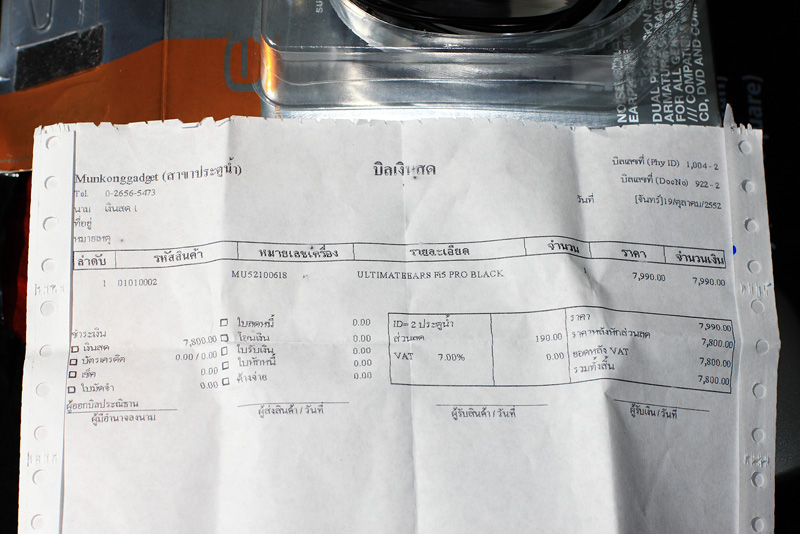 DUAL P
ARMATURE S
FOR ALL GEN
/// COMPA
CD, DVD AND COM
are)
Munkonggadget (สาขาประตูน้ำ)
บิลเงินสด
บิลเลขที่ (Phy ID) 1,004-2
Tel. 0-2656-5473
บิลเลขที่ (DocNo) 922-2
นาม เงินสด 1
วันที่ [จันทร์]19/ตุลาคม/2552
ที่อยู่
หมายเหตุ
ลำดับ รหัสสินค้า หมายเลขเครื่อง รายละเอียด จำนวน ราคา จำนวนเงิน
1 01010002 MU52100618 ULTIMATEEARS Fi5 PRO BLACK 1 7,990.00 7,990.00
ชำระเงิน
เงินสด 7,800.00
บัตรเครดิต 0.00 / 0.00
เช็ค 0.00
ใบมัดจำ 0.00
ใบลดหนี้ 0.00
โอนเงิน 0.00
ใบรับเงิน 0.00
ใบหักหนี้ 0.00
ค้างจ่าย 0.00
ID= 2 ประตูน้ำ
ส่วนลด 190.00
VAT 7.00% 0.00
ราคา 7,990.00
ราคาหลังหักส่วนลด 7,800.00
ยอดหลัง VAT 7,800.00
รวมทั้งสิ้น 7,800.00
ผู้ออกบิลประณิธาน
ผู้มีอำนาจลงนาม
ผู้ส่งสินค้า / วันที่
ผู้รับสินค้า / วันที่
ผู้รับเงิน / วันที่